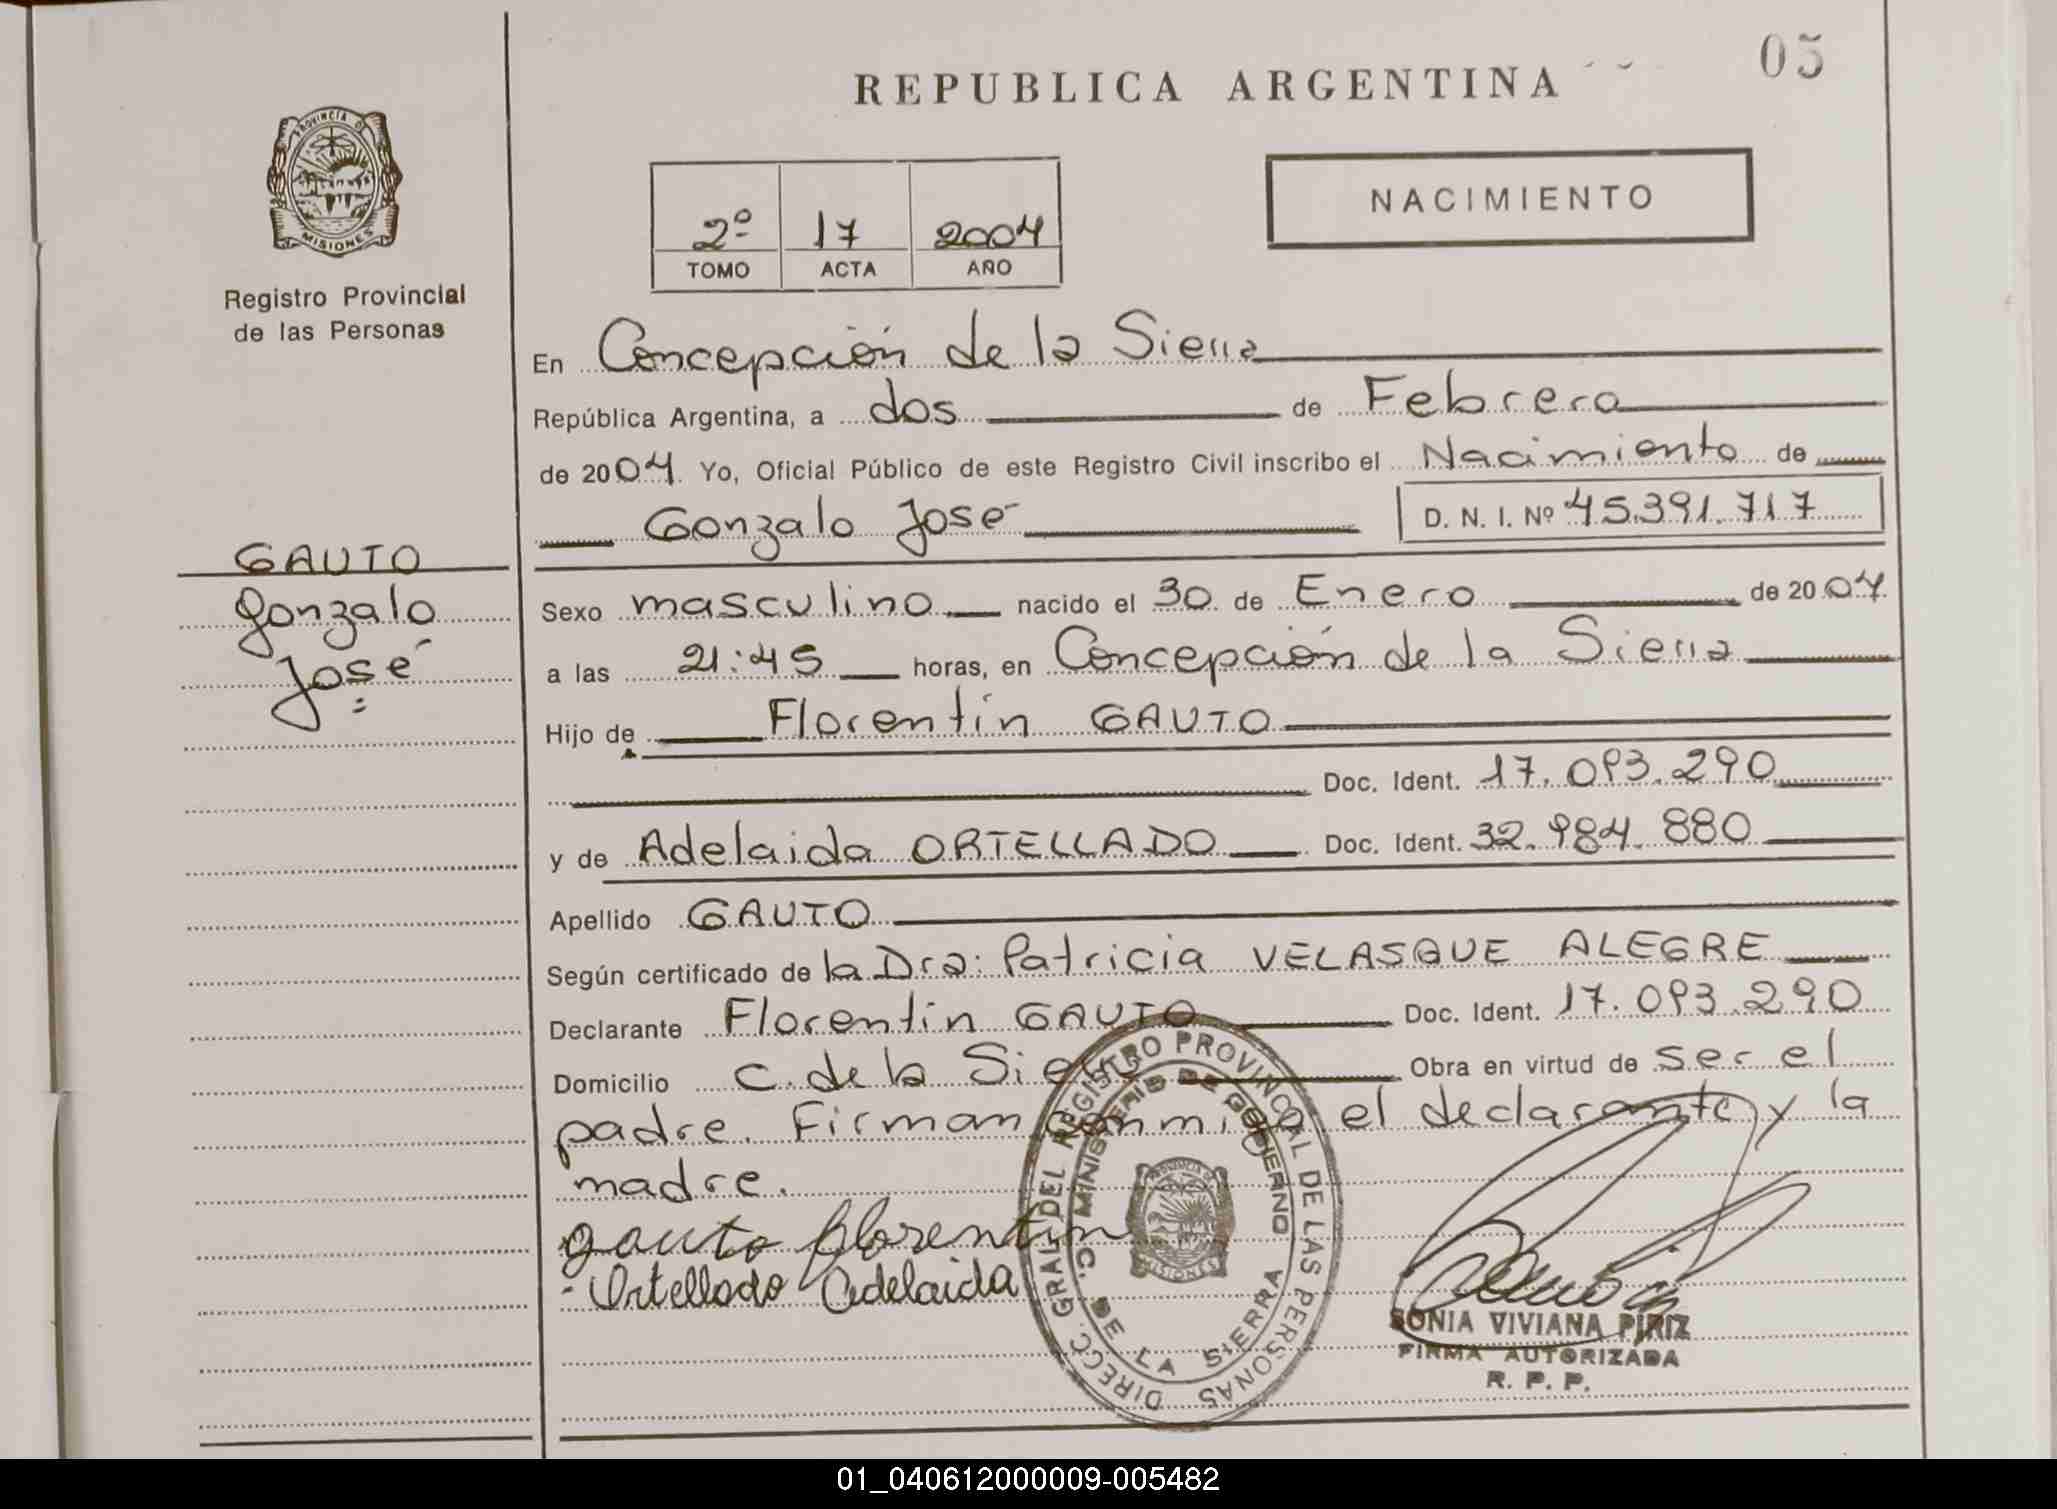 05
REPUBLICA ARGENTINA
PROVINCIA DE
MISIONES
Registro Provincial
de las Personas
2º 17 2004
TOMO ACTA AÑO
NACIMIENTO
En Concepción de la Sierra
República Argentina, a dos de Febrero
de 2004. Yo, Oficial Público de este Registro Civil inscribo el Nacimiento de
Gonzalo José D. N. I. Nº 45.391.717
GAUTO
Gonzalo
José
Sexo masculino nacido el 30 de Enero de 2004.
a las 21:45 horas, en Concepción de la Sierra
Hijo de Florentín GAUTO
Doc. Ident. 17.093.290
y de Adelaida ORTELLADO Doc. Ident. 32.984.880
Apellido GAUTO
Según certificado de la Dra: Patricia VELASQUE ALEGRE
Declarante Florentín GAUTO Doc. Ident. 17.093.290
Domicilio C. de la Sierra Obra en virtud de ser el
padre. Firman conmigo el declarante y la
madre.
gauto florentin
Ortellado Adelaida
DIRECC. GRAL. DEL REGISTRO PROVINCIAL DE LAS PERSONAS
MINISTERIO DE GOBIERNO
C. DE LA SIERRA
PROVINCIA DE
MISIONES
SONIA VIVIANA PIRIZ
FIRMA AUTORIZADA
R. P. P.
01_040612000009-005482